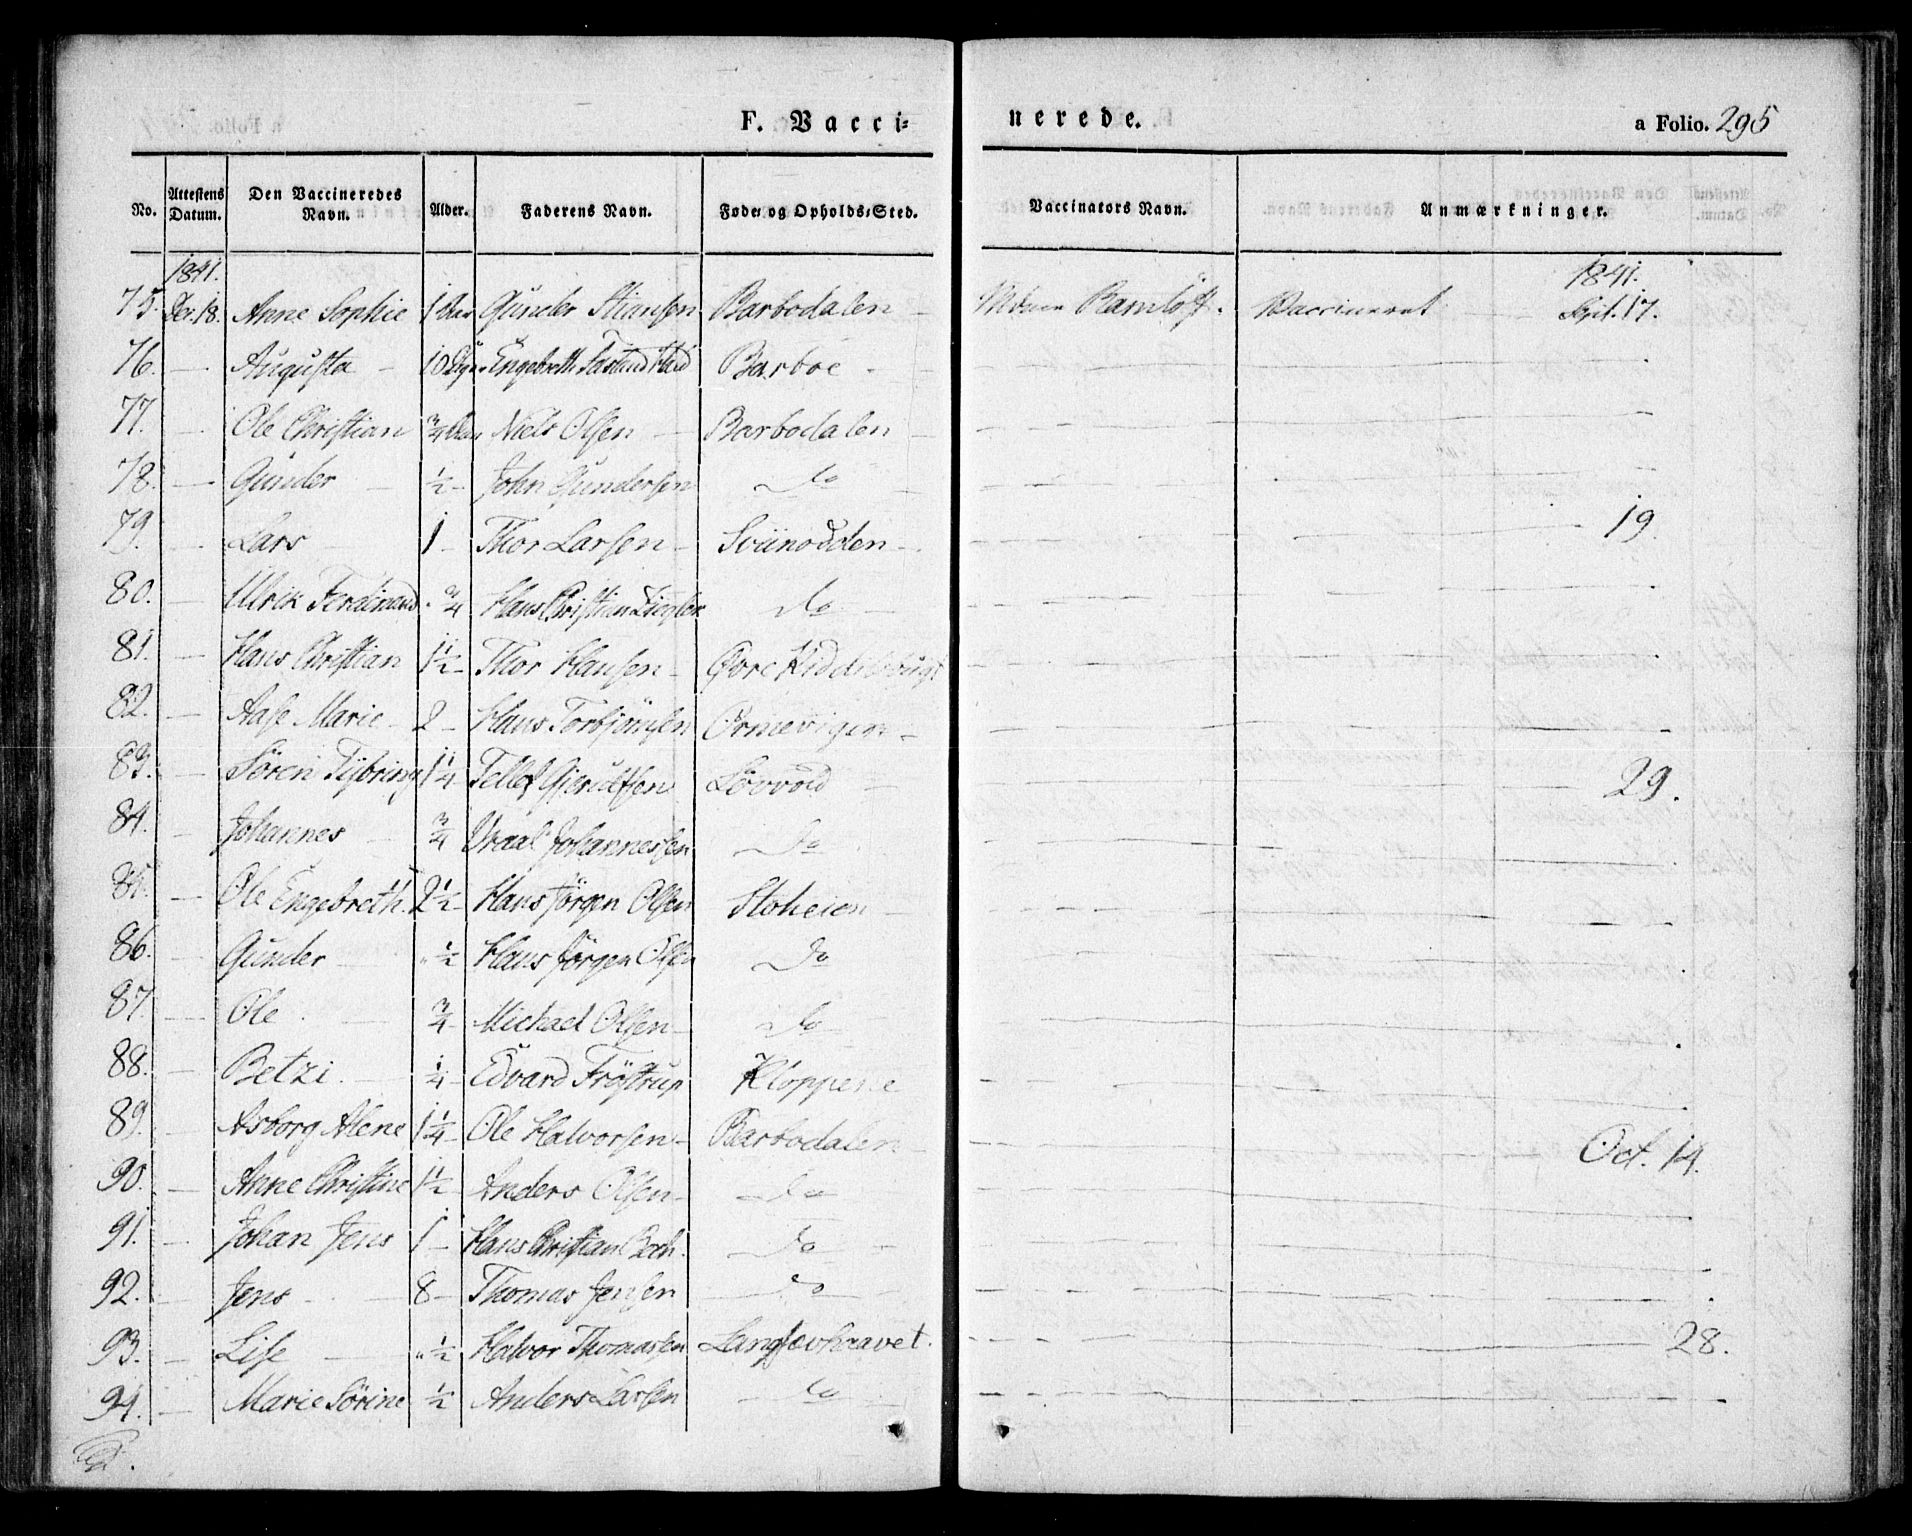 F. Vacci-nerede. a Folio. 295
No. Attestens Datum. Den Vaccineredes Navn. Alder. Faderens Navn. Føde- og Opholds-Sted. Vaccinators Navn. Anmærkninger.
1841. 1841.
75. 18. Anne Sophie 1 Gunder Stiansen Barbodalen Ramløff. Vaccineret Sept. 17.
76. — Augusta — 10 Engebreth Barboe
77. — Ole Christian 3/4 Niels Olsen — Barbodalen
78. — Gunder — 1/2 — John Gundersen do
79. — Lars 1 — Thor Larsen — Sviinodden — 19.
80. — Ulrik Ferdinand 3/4 Hans Christian Ziegler do
81. — Hans Christian 1 1/2 — Thor Hansen — Øvre
82. — Aase Marie — 2 — Hans Torbjørnsen Ormevigen —
83. — Søren Tybring 1 1/4 Tellef Gjerulfsen Løvvold 29.
84. — Johannes — 3/4 Vraal Johannessen do
85. — Ole Engebreth. 2 1/2 — Hans Jørgen Olsen Stoheien
86. — Gunder — " 1/2 Hans Jørgen Olsen do
87. — Ole — 3/4 — Michael Olsen — do
88. — Betzi. — 1/4 — Edvard Frøstrup Kloppene
89. — Asborg Alene 1 1/4 — Ole Halvorsen — Barbodalen Oct. 14.
90. — Anne Christine 1 1/2 Anders Olsen — do
91. — Johan Jens 1 — Hans Christian Boch. do
92. — Jens — 8 — Thomas Jensen do
93. — Lise — " 1/2 Halvor Thomassen Langsevhaavet. 28.
94. — Marie Sørine 1/2 — Anders Larsen do